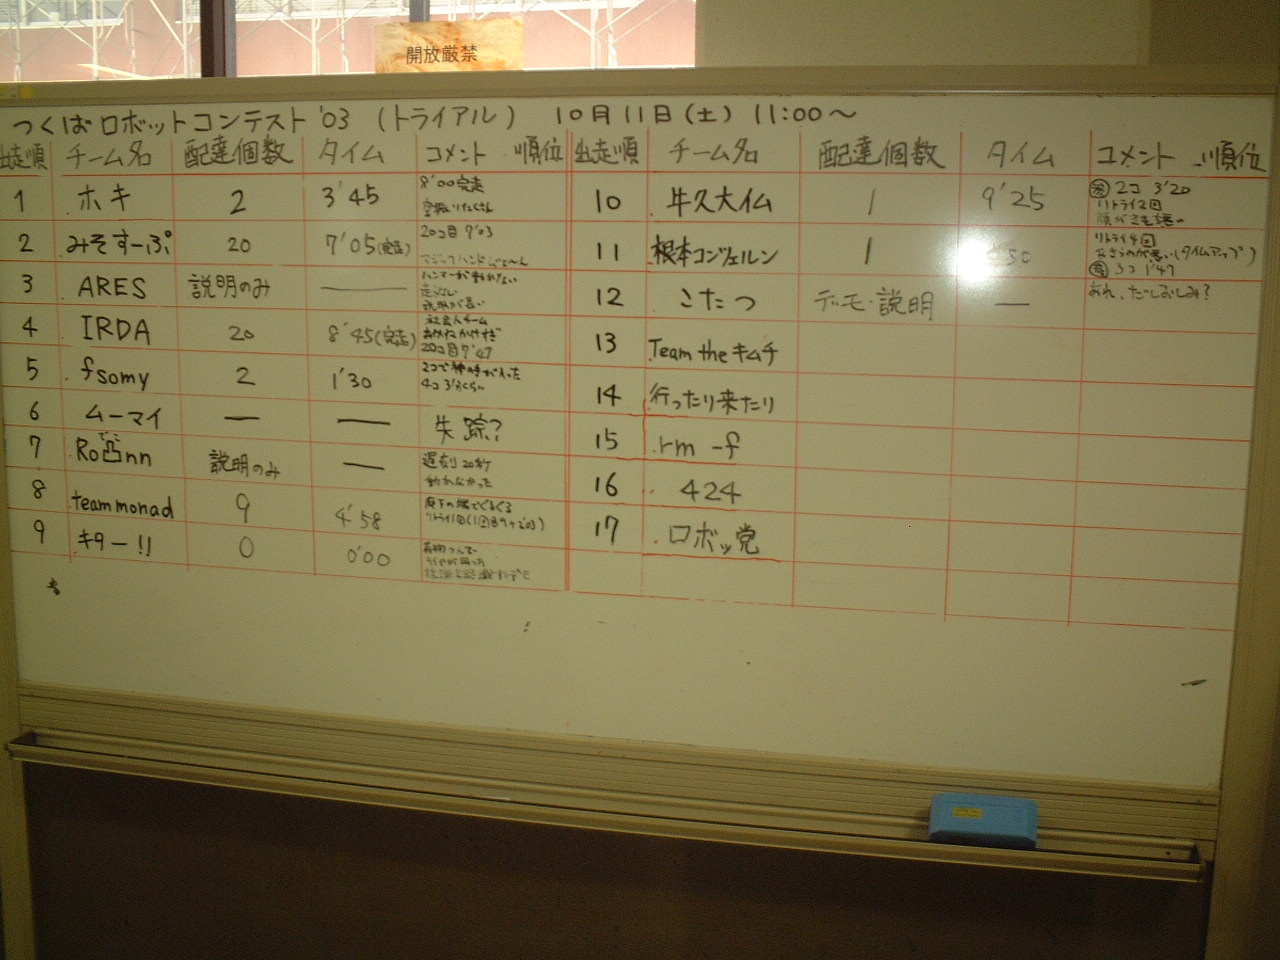 開放厳禁
つくばロボットコンテスト'03 (トライアル) 10月11日(土) 11:00〜
出走順 チーム名 配達個数 タイム コメント 順位
1 ホキ 2 3'45 8'00完走
2 みそすーぷ 20 7'05(完走) 20コ目 7'03
マジックハンド
3 ARES 説明のみ —
説明が長い
4 IRDA 20 8'45(完走) 社会人チーム
20コ目 7'47
5 fsomy 2 1'30 2コで神の手が入った
4コ 3'8くらい
6 ムーマイ — — 失踪?
7 Ro凸nn 説明のみ — 遅刻20秒
動かなかった
8 team monad 9 4'58 廊下の端でぐるぐる
9 キター!! 0 0'00
出走順 チーム名 配達個数 タイム コメント 順位
10 牛久大仏 1 9'25 2コ 3'20
リトライ2回
11 根本コンツェルン 1 50 リトライ4回
(タイムアップ)
3コ 1'47
12 こたつ デモ・説明 — おれ、だしおしみ?
13 Team the キムチ
14 行ったり来たり
15 rm -f
16 424
17 ロボッ党